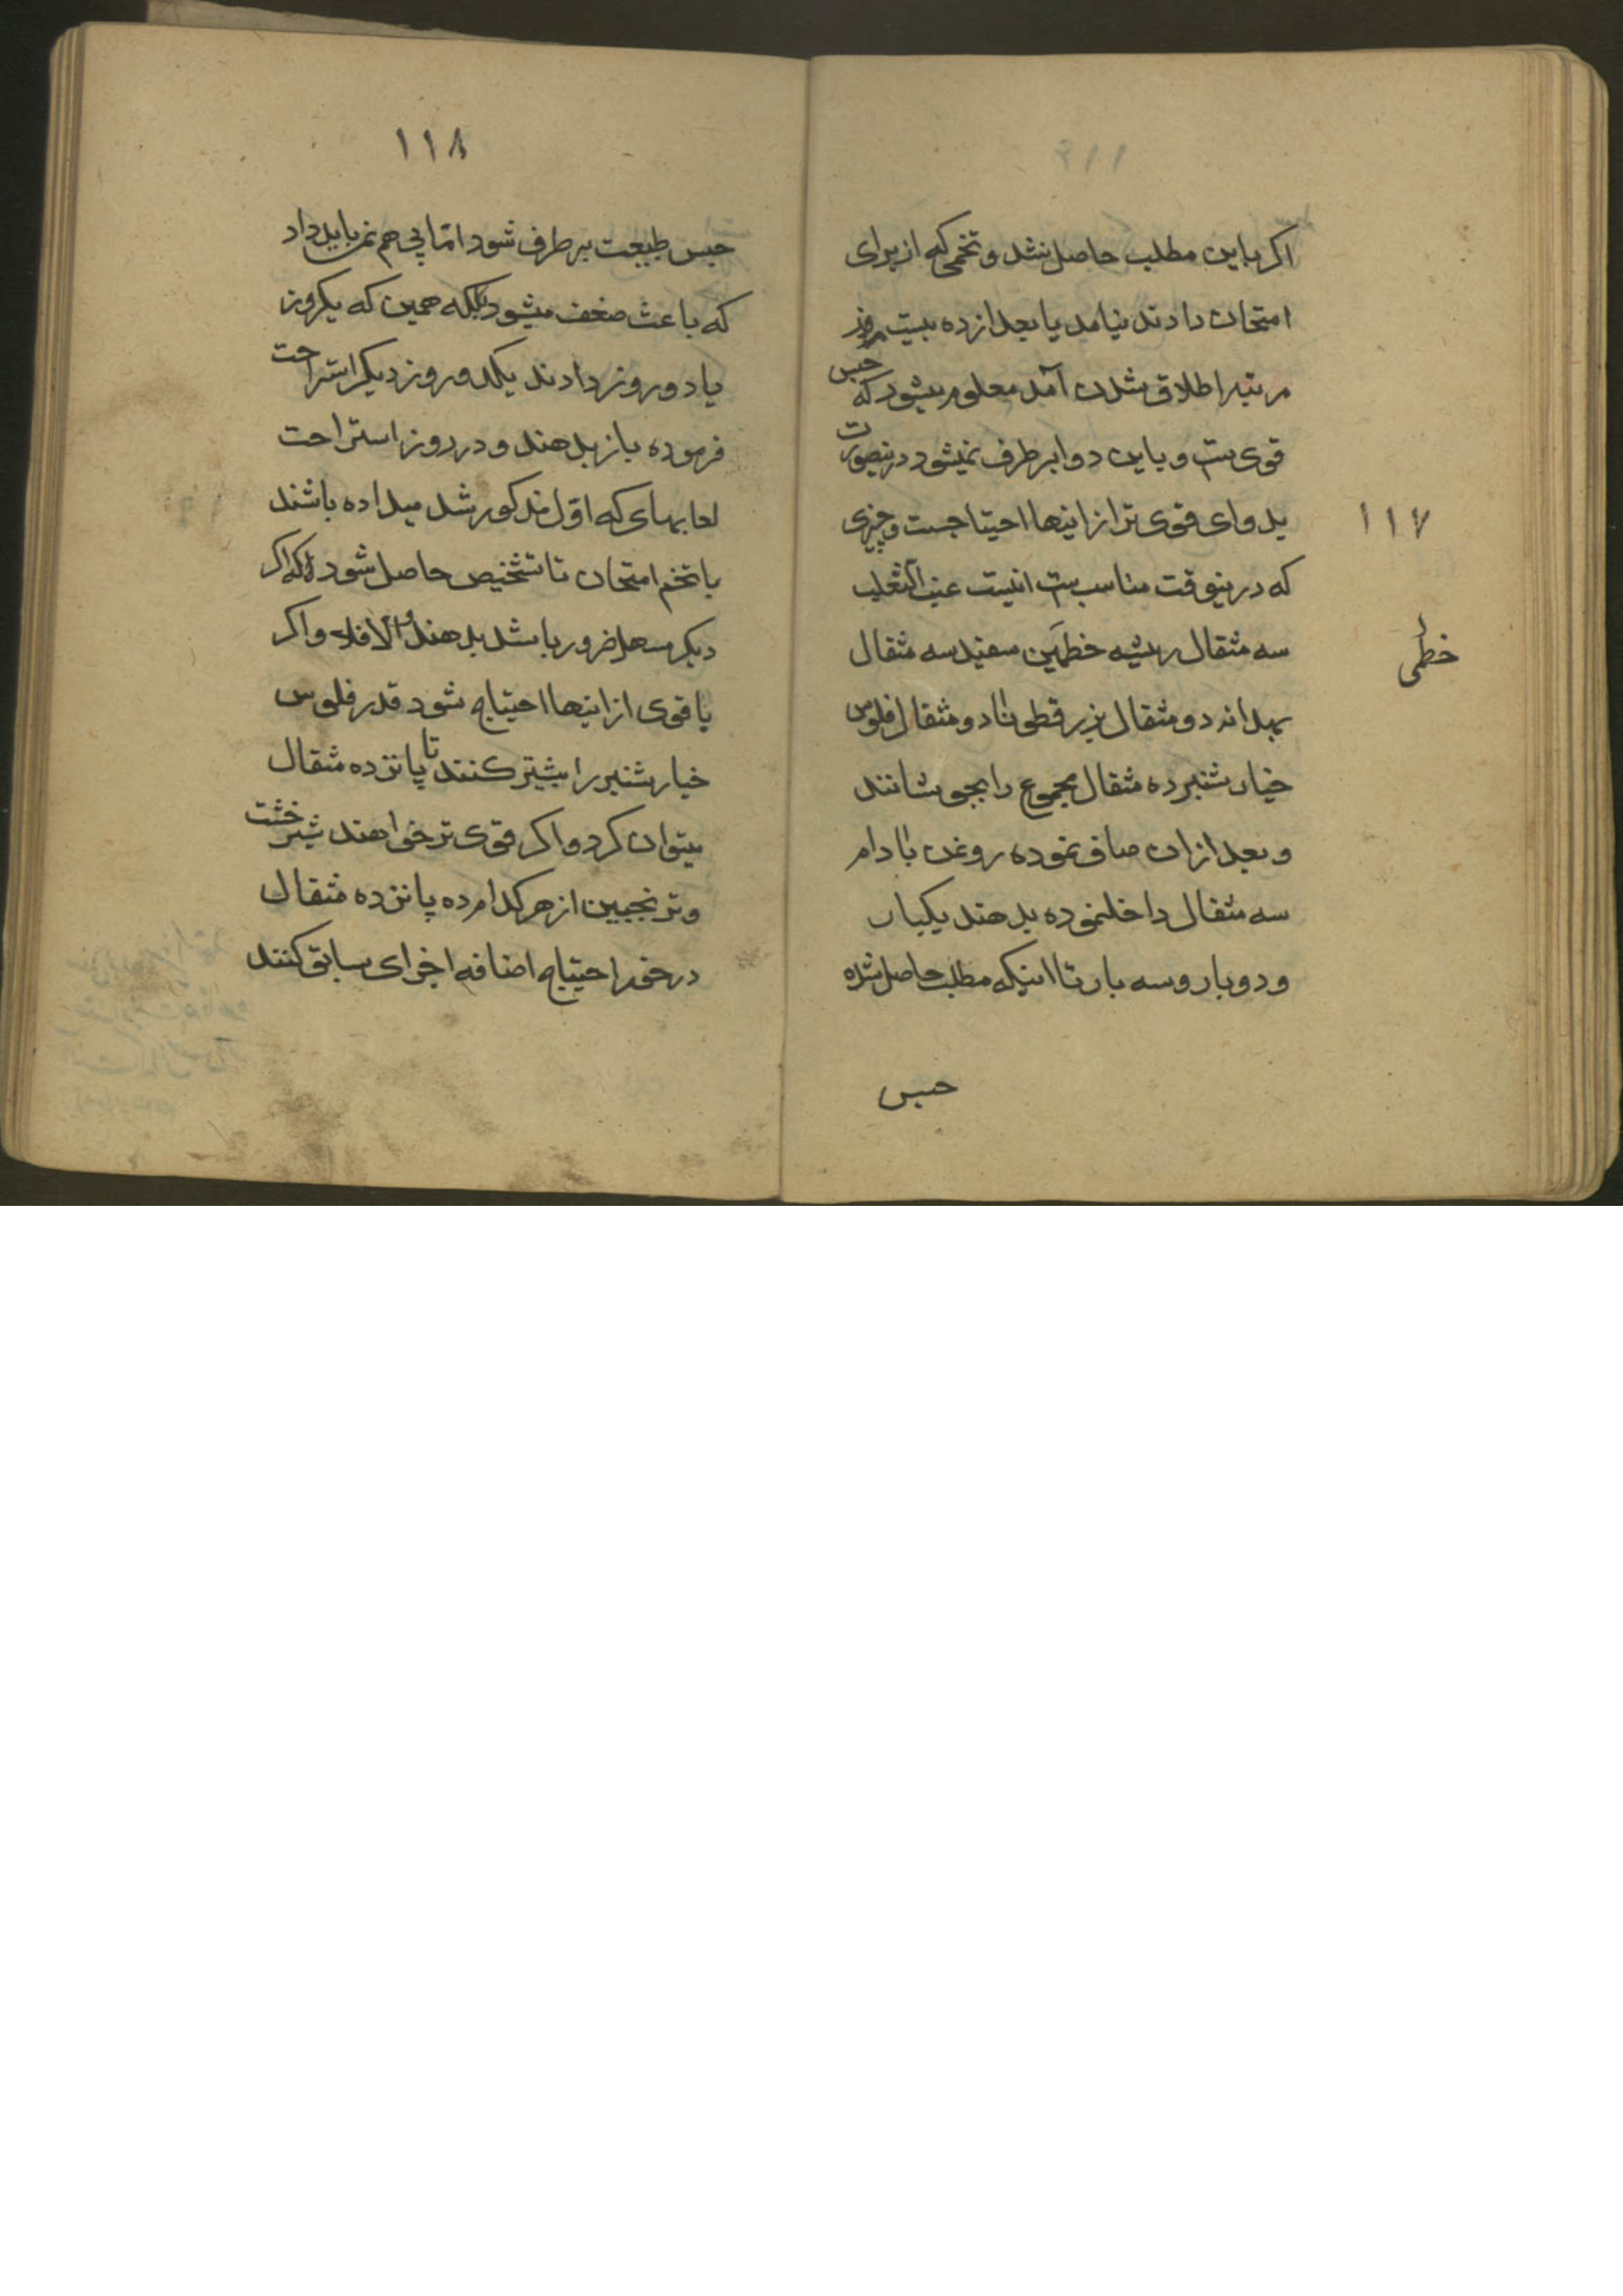 اکر باین مطلب حاصل نشد و تخمی که از برای
امتحان دادند نیامد یا بعد از ده بیست روز
مرتبه اطلاق شدن آمد معلوم میشود که حبس
قوی ست و باین دوا برطرف نمیشود درینصورت
بدوای قوی تر از اینها احتیاجست و چیزی
۱۱۷
که درینوقت مناسب ست اینست عنب الثعلب
سه مثقال ریشه خطمی سفید سه مثقال
خطمی
بهدانه دو مثقال بزرقطونا دو مثقال فلوس
خیار شنبر ده مثقال مجموع را بجوشانند
و بعد از ان صاف نموده روغن بادام
سه مثقال داخلنموده بدهند یکبار
و دوبار و سه بار تا اینکه مطلب حاصل شده
حبس
۱۱۸
حبس طبیعت برطرف شود اما پی هم نمی باید داد
که باعث ضعف میشود بلکه همین که یکروز
یا دو روز دادند یکدو روز دیکر استراحت
فرموده باز بدهند و در روز استراحت
لعابهای که اول مذکور شد میداده باشند
با تخم امتحان تا تشخیص حاصل شود که اکر
دیکر مسهل ضرور باشد بدهند و الا فلا و اکر
با قوی از اینها احتیاج شود قدر فلوس
خیار شنبر را بیشتر کنند تا پانزده مثقال
میتوان کرد و اکر قوی تر خواهند شیر خشت
و ترنجبین از هر کدام ده پانزده مثقال
در خور احتیاج اضافه اجزای سابق کنند